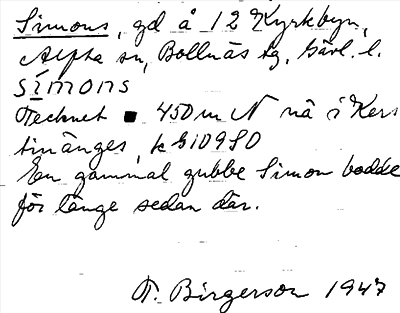 Simons, gd å 12 Kyrkbyn,
Alfta sn, Bollnäs tg, Gävl. l.
símons
Tecknet ■ 450 m N nä i Kers
tinänges, k G10980
En gammal gubbe Simon bodde
för länge sedan där.
T. Birgerson 1947